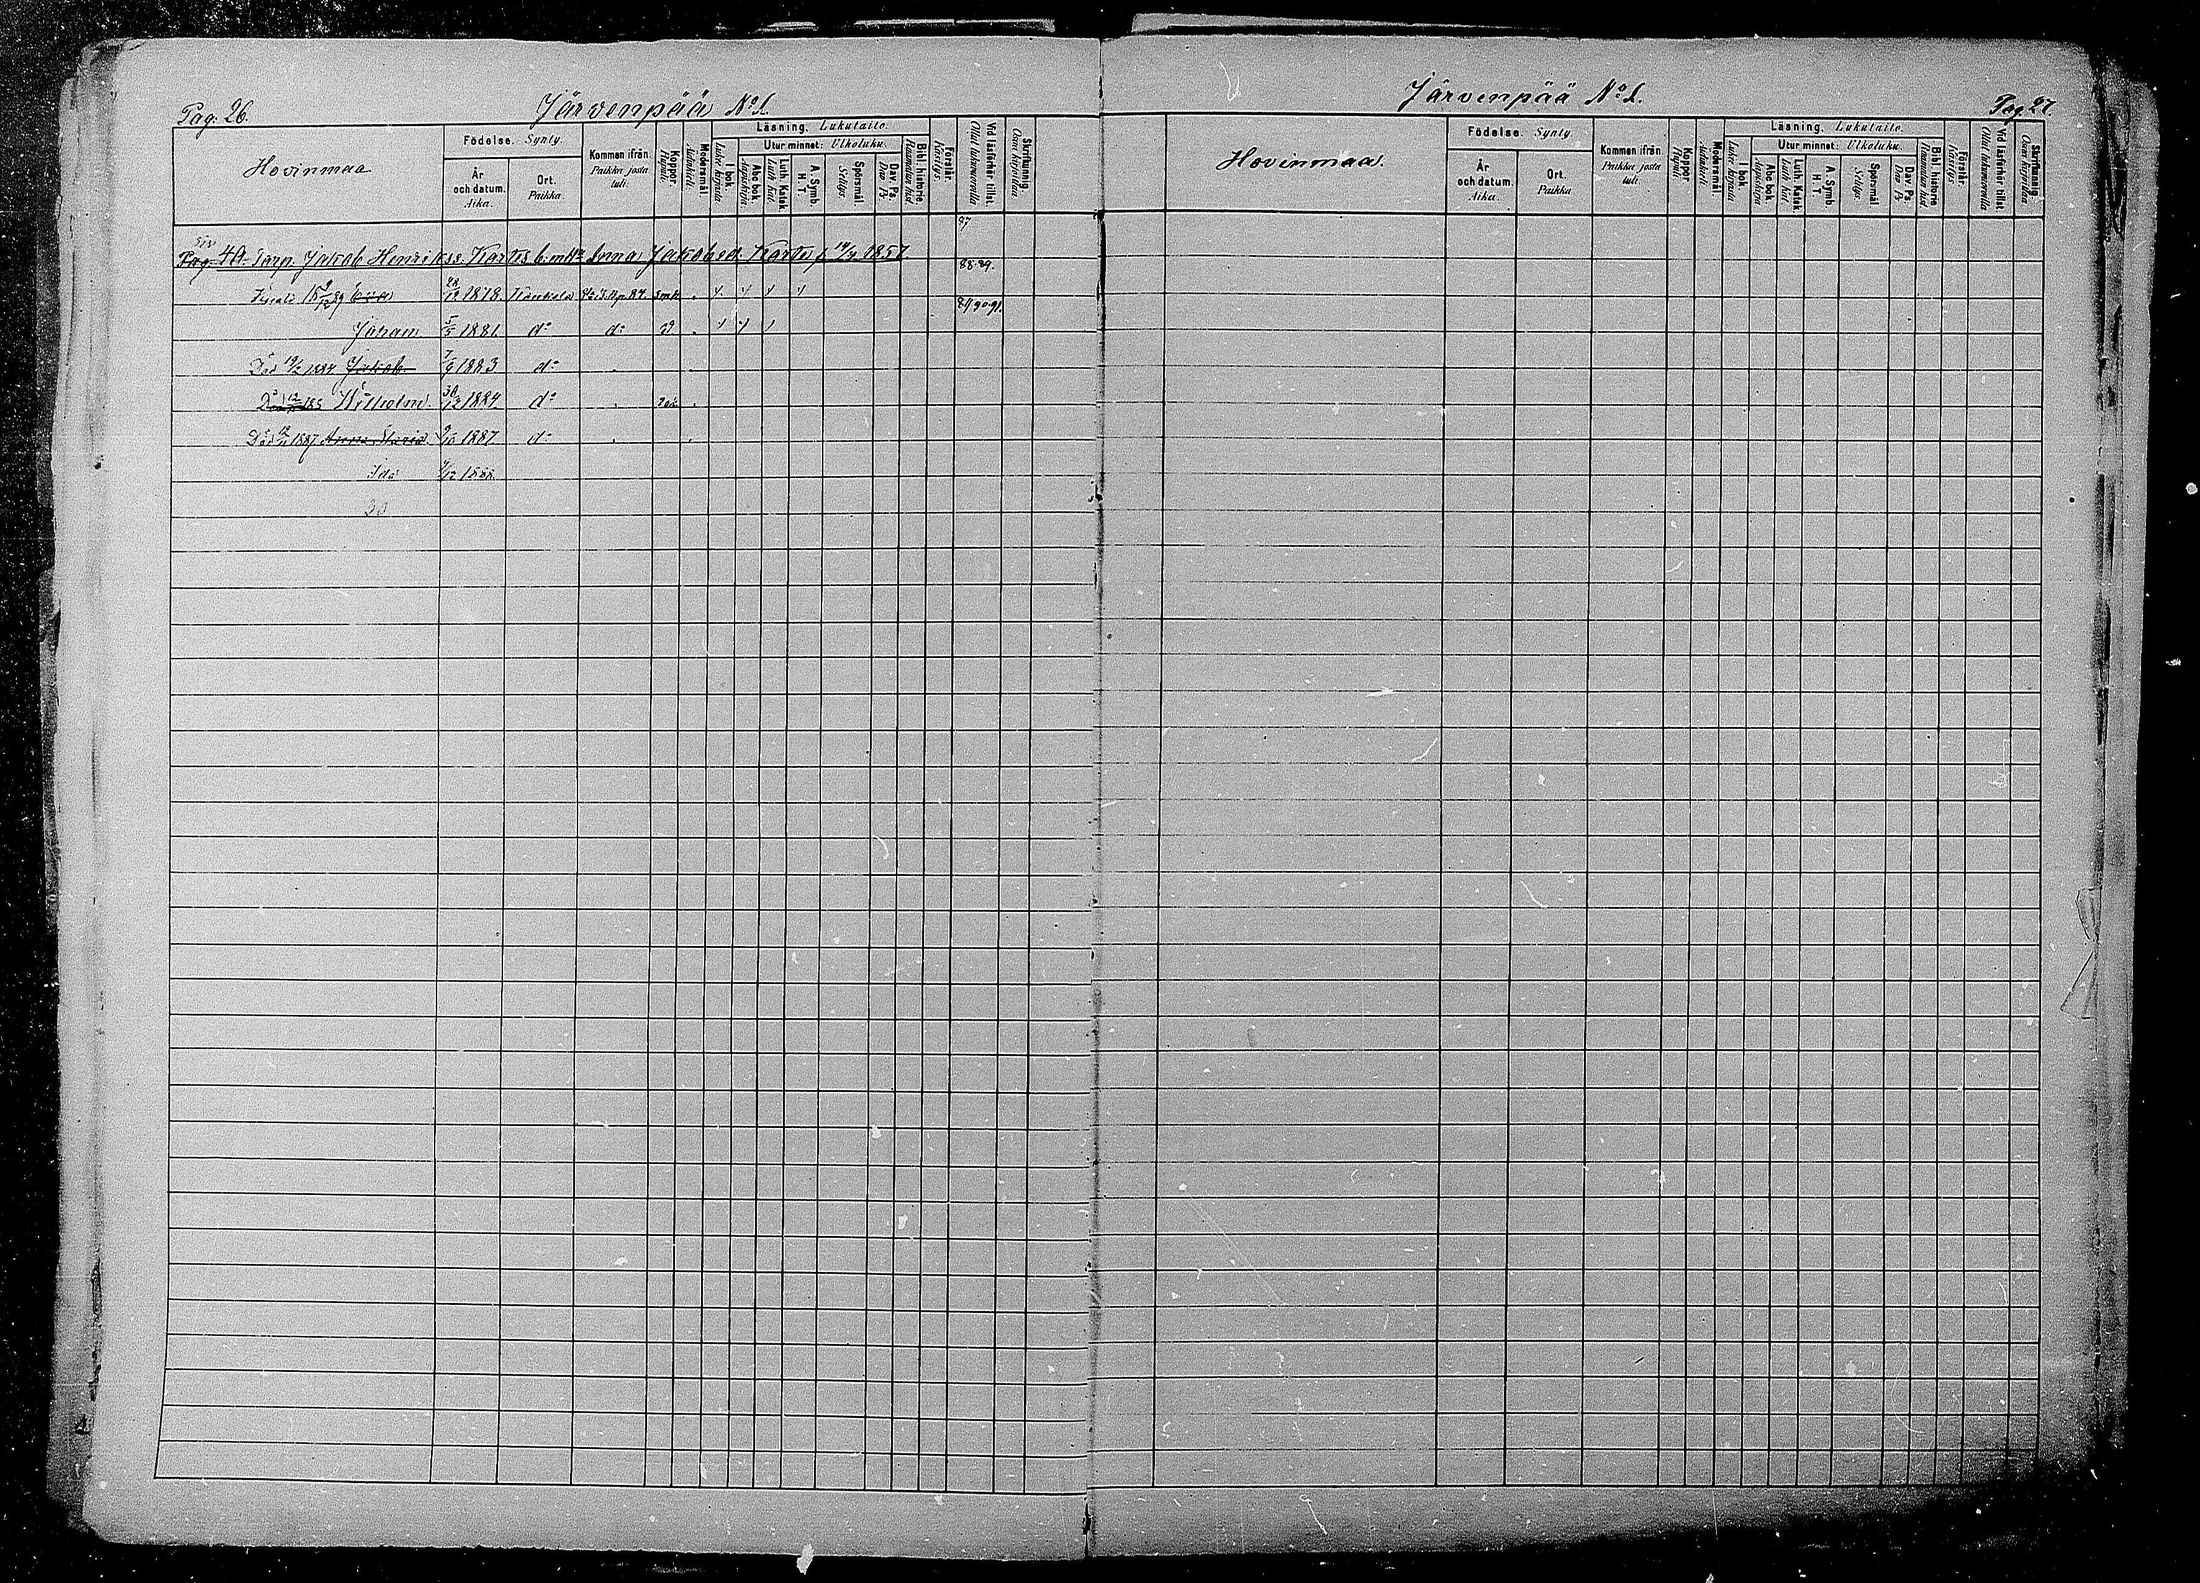 Pag. 26.
Järvenpää No 1.
Hovinmaa
Födelse. Synty.
År och datum. Aika.
Ort. Paikka.
Kommen ifrån. Paikka josta tuli.
Koppor. Rupuli.
Modersmål. Äidinkieli
Läsning. Lukutaito.
I bok. Luku kirjasta
Utur minnet: Ulkoluku.
Abc bok. Aapiskirja.
Luth. Katek. Luth. kat.
A. Symb. H. T.
Spörsmål. Selitys.
Dav. Ps. Dav. Ps.
Bibl. historie. Raamatun hist.
Förstår. Käsitys.
Vid läsförhör tillst. Ollut lukuvuorolla
Skrifkunnig. Osaa kirjoittaa.
87
Pag. 40. Torp. Jakob Henrikss. Kartes b. m. Anna Jakobsd. 14/4 1857
88. 89.
89 Eva 28/12 1878. 84. smk
89 90. 91.
Johan 1881. do do
Död 19/2 1884 Jakob 7/9 1883 do
Wilhelm 30/12 1884 do
Död 1887 Anna Maria 9/10 1887 do
Ida 9/12 1888.
Järvenpää No 1.
Pag. 27.
Hovinmaa.
Födelse. Synty.
År och datum. Aika.
Ort. Paikka
Kommen ifrån. Paikka josta tuli.
Koppor. Rupuli.
Modersmål. Äidinkieli
Läsning. Lukutaito.
I bok. Luku kirjasta
Utur minnet: Ulkoluku.
Abc bok. Aapiskirja
Luth. Katek. Luth. kat.
A. Symb. H. T.
Spörsmål. Selitys.
Dav. Ps. Dav. Ps.
Bibl. historie Raamatun hist.
Förstår. Käsitys.
Vid läsförhör tillst. Ollut lukuvuorolla
Skrifkunnig. Osaa kirjoittaa